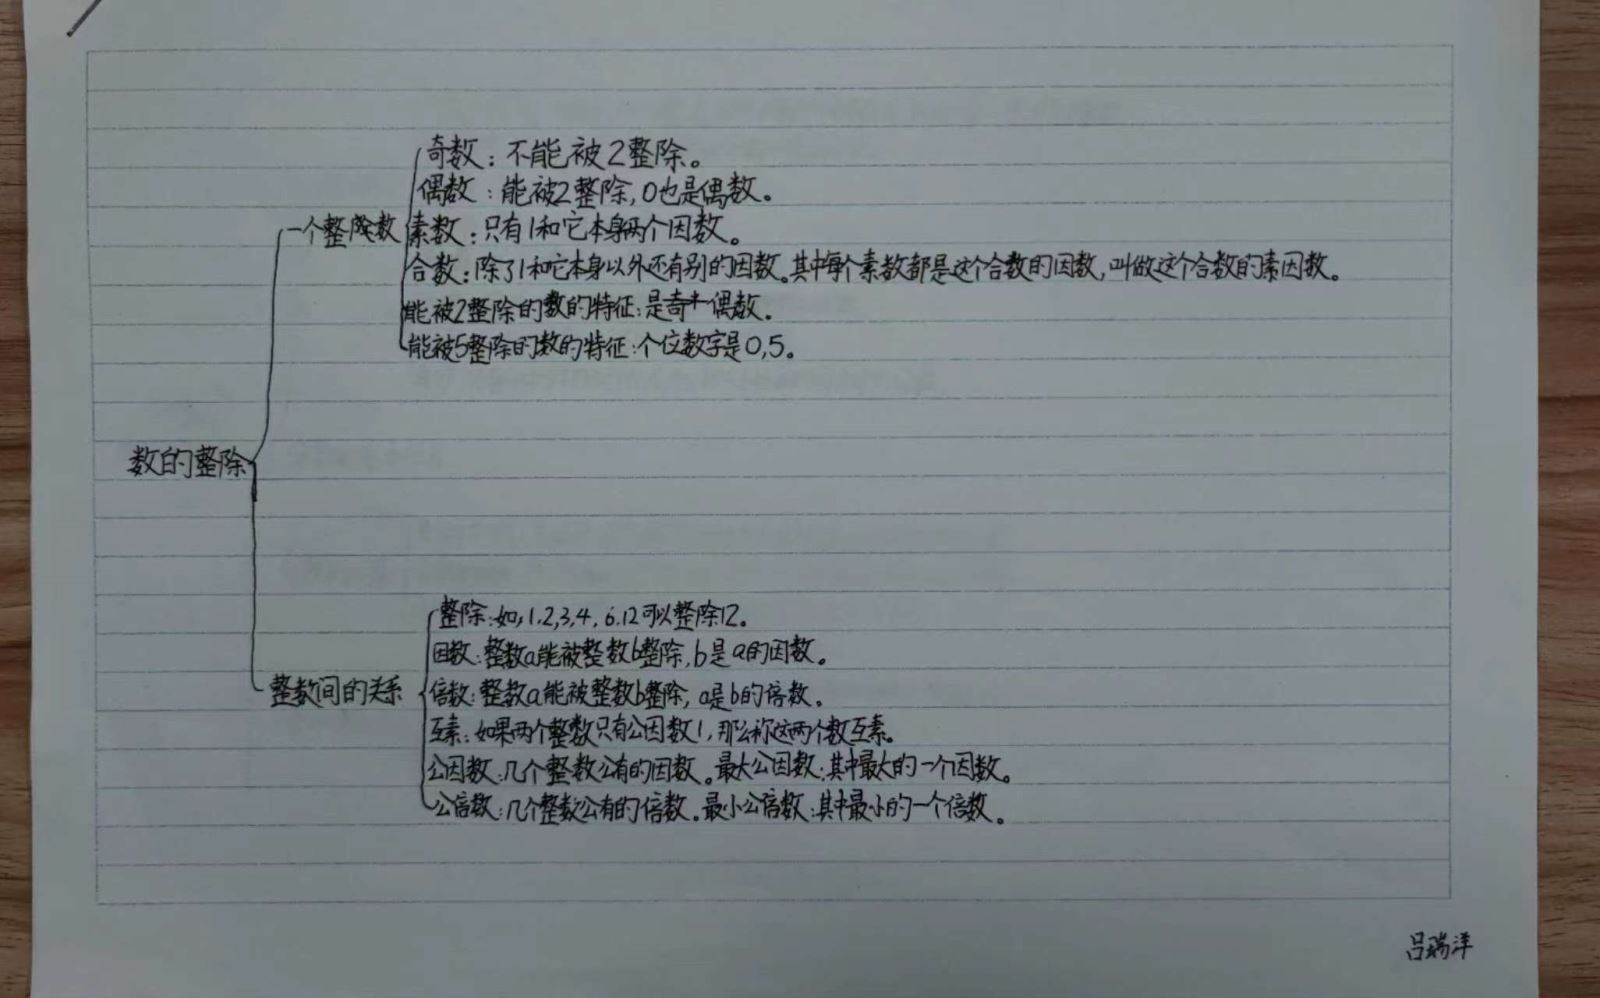 奇数：不能被2整除。
偶数：能被2整除,0也是偶数。
一个整数
素数：只有1和它本身两个因数。
合数：除了1和它本身以外还有别的因数。其中每个素数都是这个合数的因数,叫做这个合数的素因数。
能被2整除的数的特征：是偶数。
能被5整除的数的特征：个位数字是0,5。
数的整除
整除：如,1.2,3,4,6.12可以整除12。
因数：整数a能被整数b整除,b是a的因数。
整数间的关系
倍数：整数a能被整数b整除,a是b的倍数。
互素：如果两个整数只有公因数1,那么称这两个数互素。
公因数：几个整数公有的因数。最大公因数：其中最大的一个因数。
公倍数：几个整数公有的倍数。最小公倍数：其中最小的一个倍数。
吕瑞洋